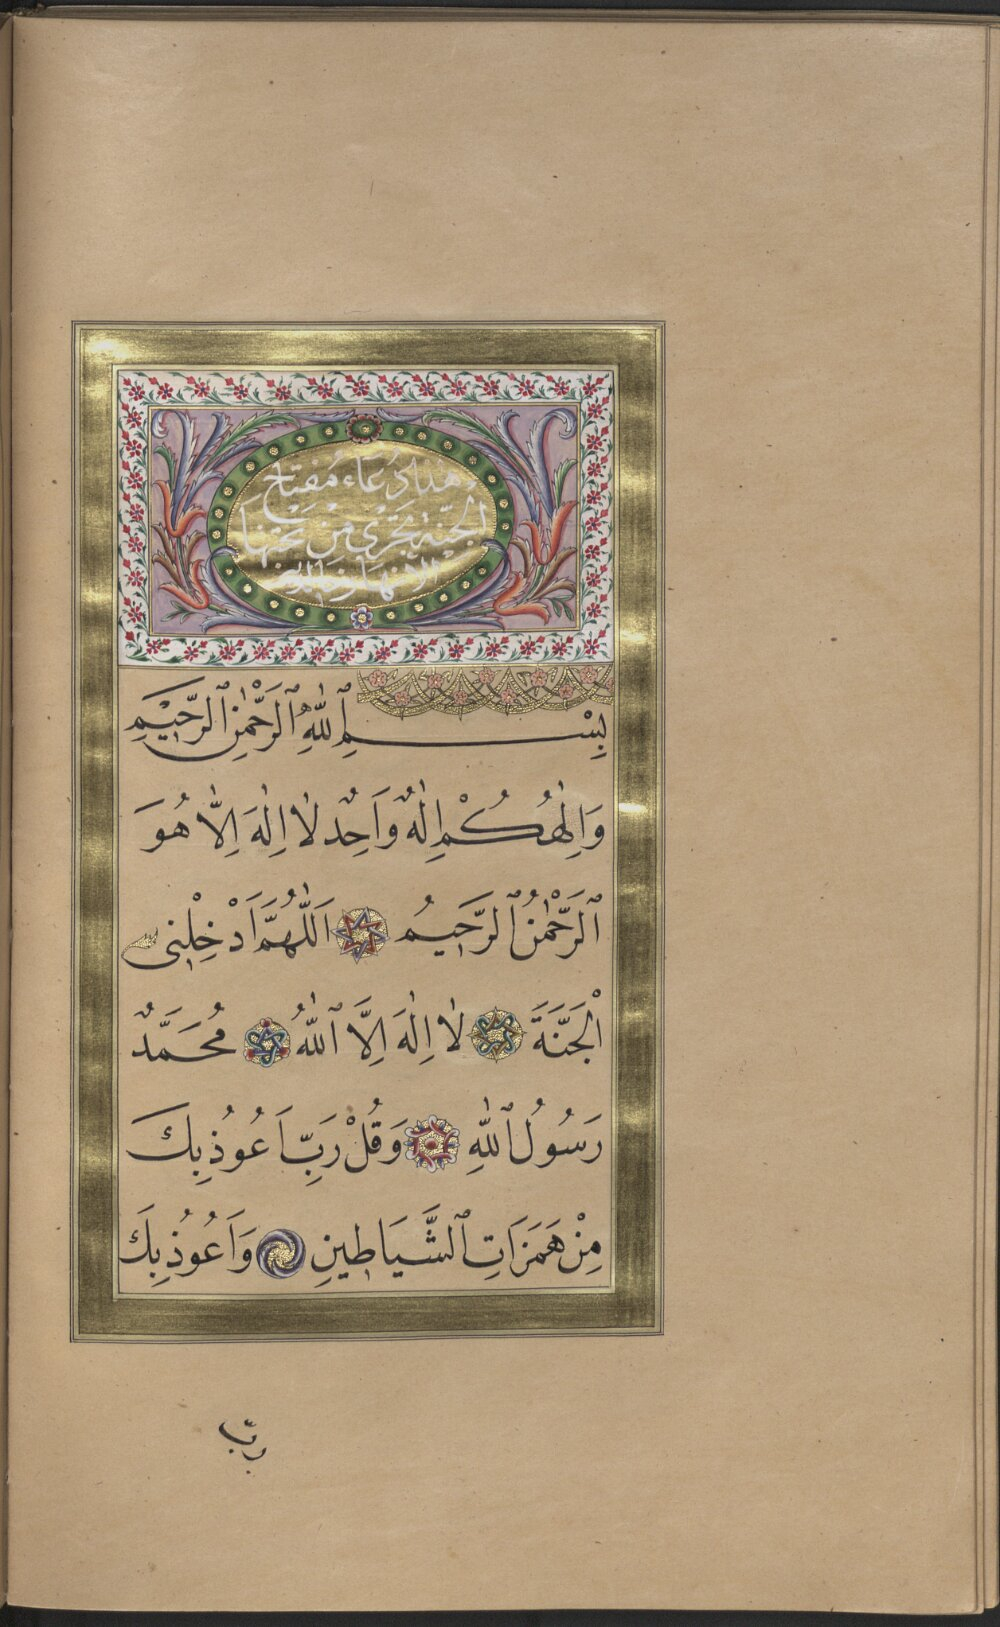 هٰذَا دُعَاء مُفْتَاح
الجنَّة تَجَرْي مِنْ تَحْتِهَا
الأنهار خالدين
بِسْمِ ٱللّٰهِ ٱلرَّحْمٰنِ ٱلرَّحِيْمِ
وَاِلٰهُكُمْ اِلٰهٌ وَاَحِدٌ لَا اِلٰهَ اِلَّا هُوَ
ٱلرَّحْمٰنُ ٱلرَّحِيمُ اَللّٰهُمَّ اَدْخِلْنِي
الْجَنَّةَ لَا اِلٰهَ اِلَّا ٱللّٰهُ مُحَمَّدٌ
رَسُولُ ٱللّٰهِ وَقُلْ رَبِّ اَعُوذُ بِكَ
مِنْ هَمَزَاتِ ٱلشَّيَاطِينِ وَاَعُوذُ بِكَ
ربّ